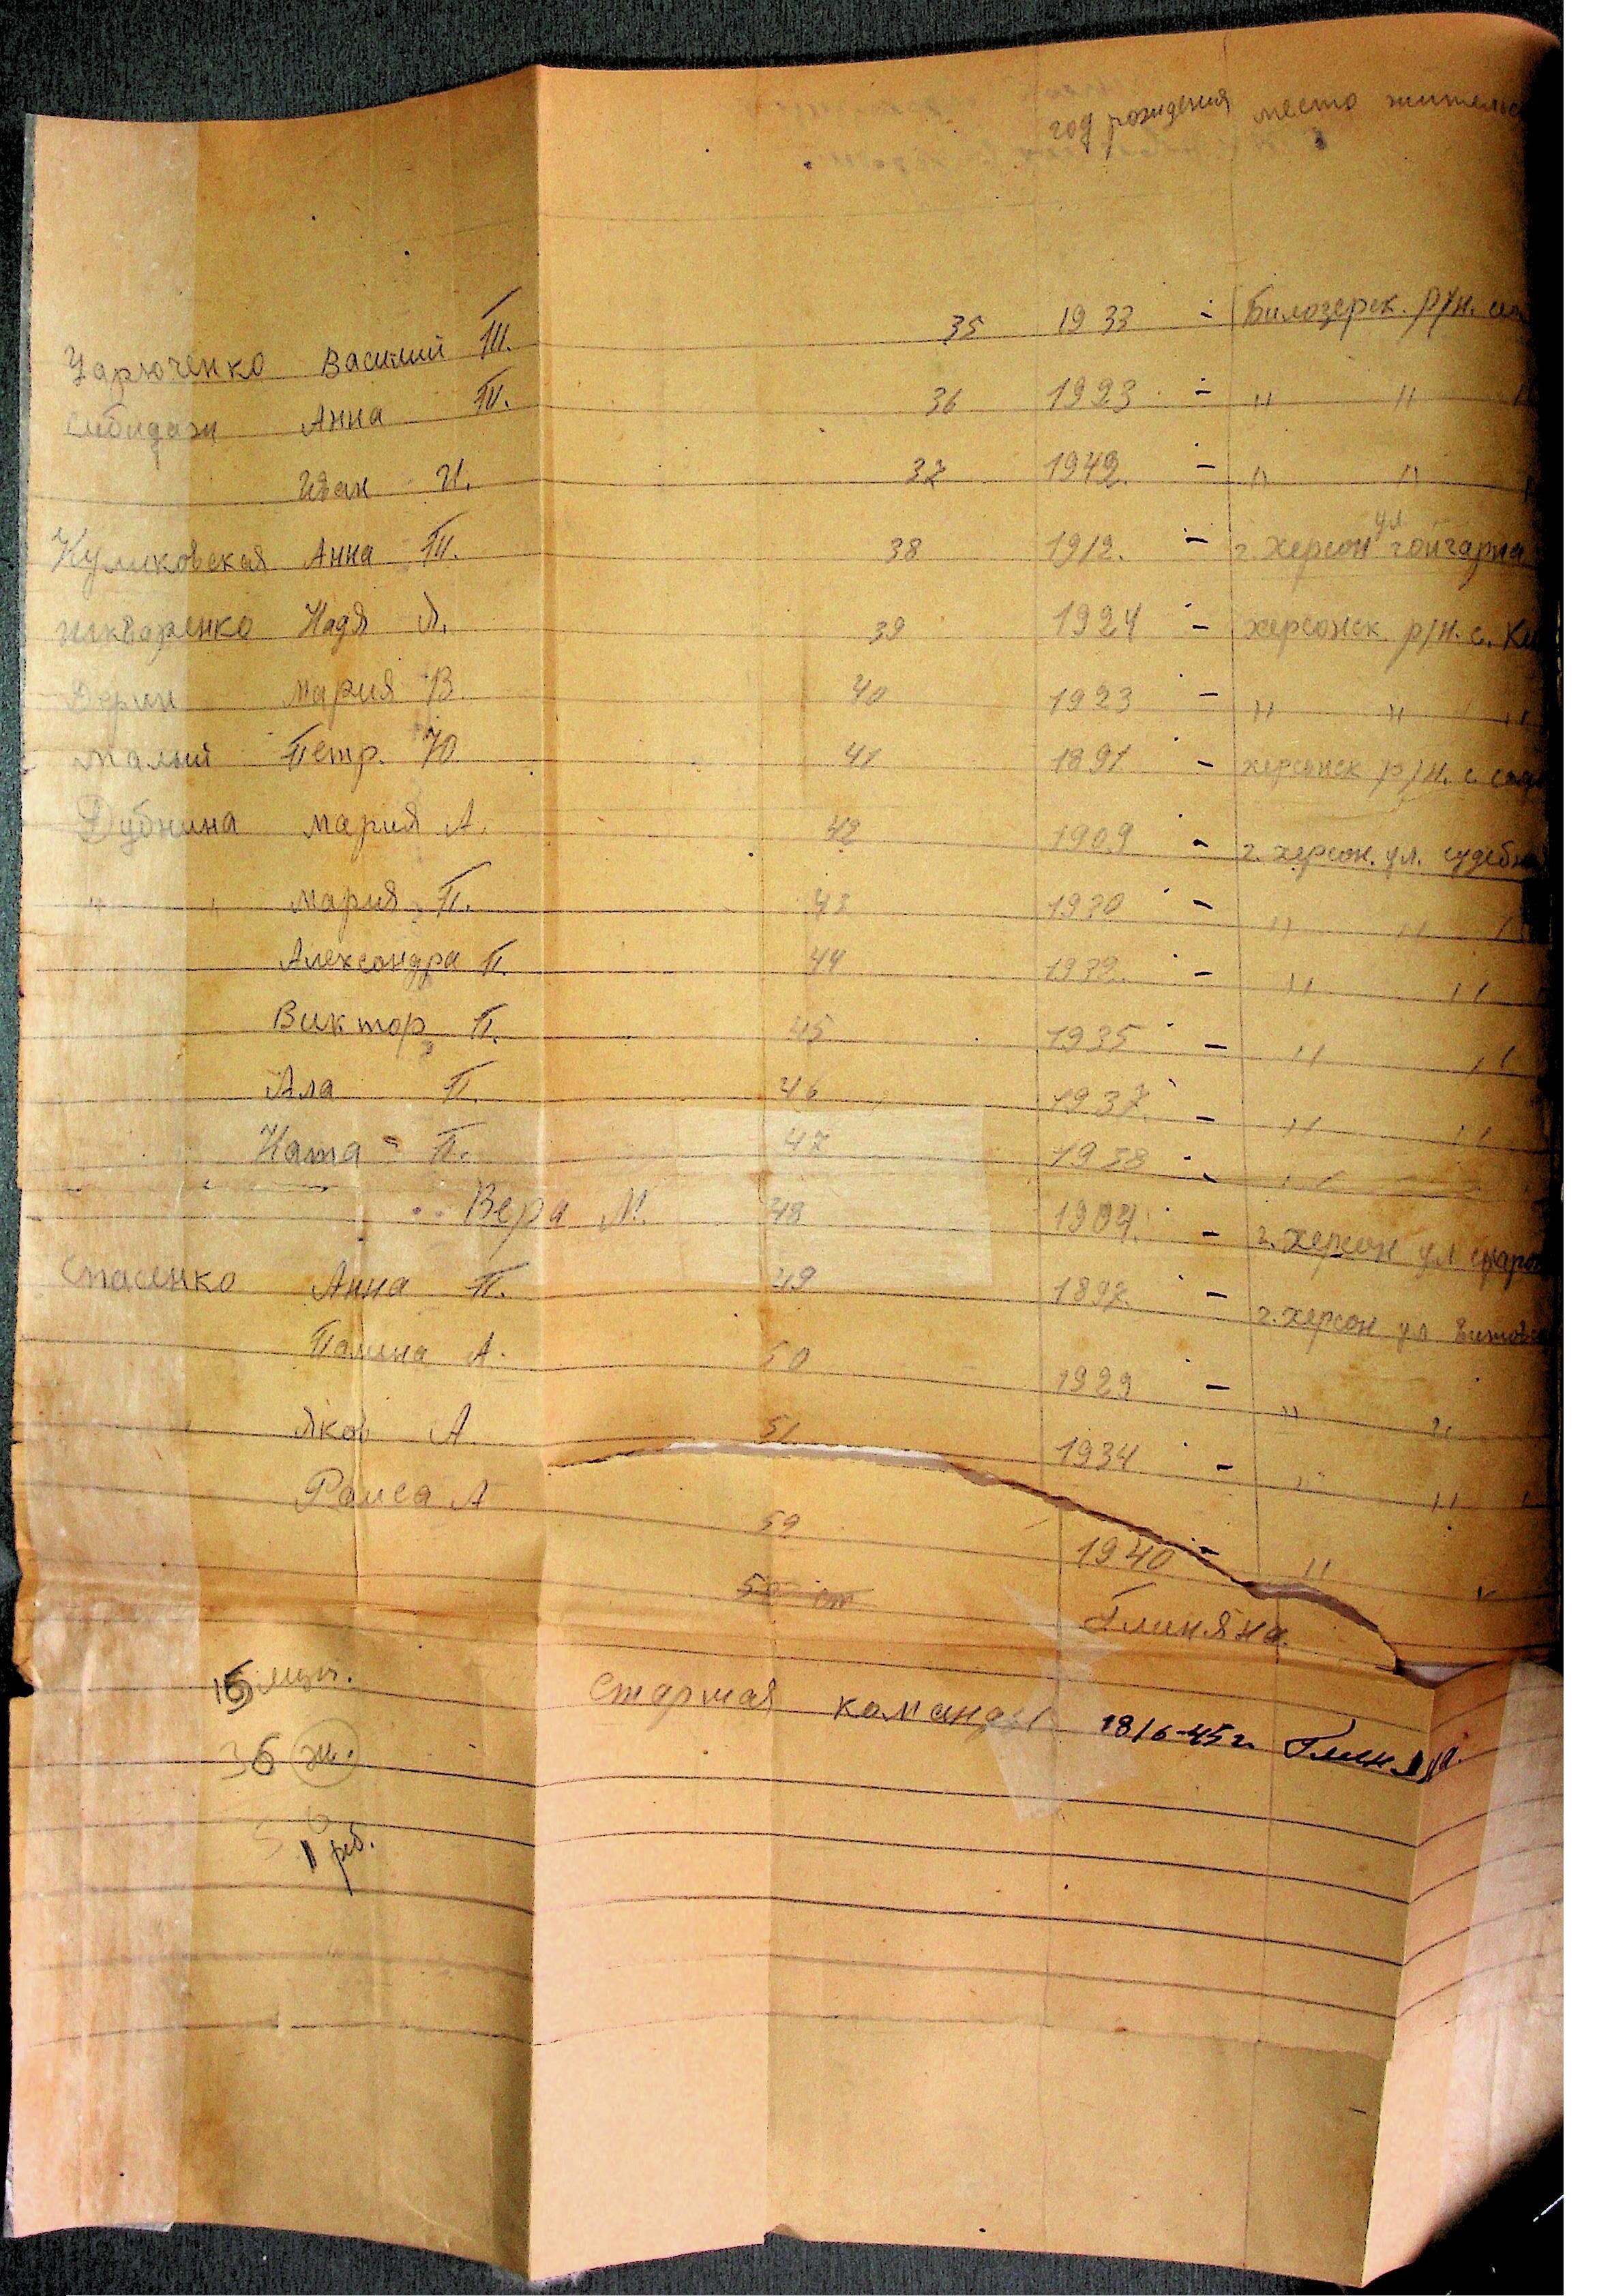 год рождения место жительс
Василий Т. 35 1933 - Билозерск. р/н.
Анна Т. 36 1923 - " " "
Иван И. 37 1942. - " " "
Куликовская Анна Т. 38 1912. - г. Херсон ул гончарна
Надя Я. 39 1924 - херсонск. р/н. с.
Мария В. 40 1923 - " " "
малый Петр. Ю 41 1891 - херсонск р/н. с.
Дубнина Мария А. 42 1909 - г. херсон. ул. судебна
" " Мария П. 43 1930 - " " "
Александра П. 44 1932. - " "
Виктор П. 45 1935 - " "
Ала П. 46 1937. - " "
Ната - П. 47 1938 - "
Вера М. 48 1904. - г. херсон ул
Спасенко Анна П. 49 1897. - г. херсон ул
Палина А. 50 1929 - " "
Яков А. 51 1934 - " " "
Раиса А 52 1940 - " "
Глиняна.
15 муж. старшая команды 18/6-45г. Глиняна.
36 ж.
1 реб.